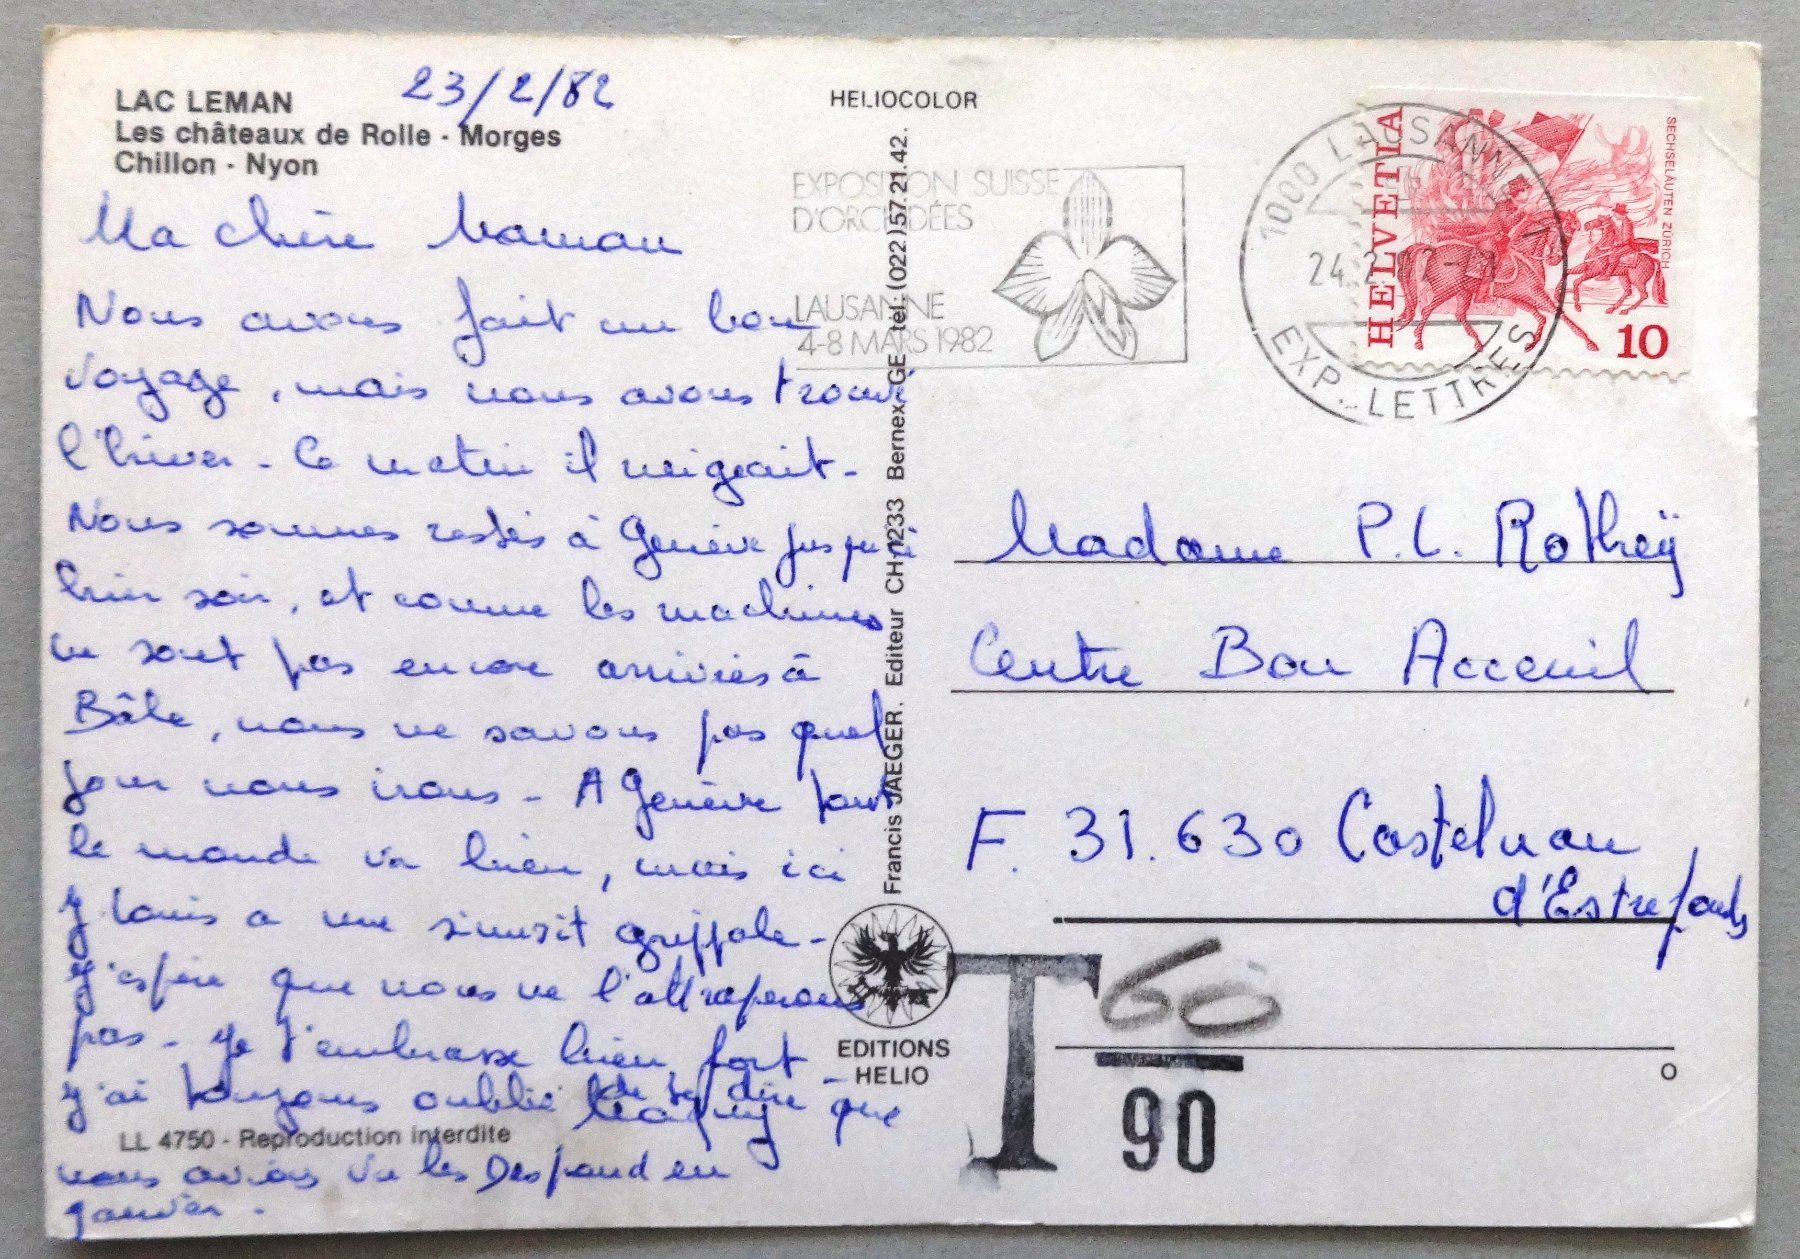 LAC LEMAN
Les châteaux de Rolle - Morges
Chillon - Nyon
23/2/82
Ma chère Maman
Nous avons fait un bon
voyage, mais nous avons trouvé
l'hiver - Ce matin il neigeait -
Nous sommes restés à Genève jusqu'à
hier soir, et comme les machines
ne sont pas encore arrivées à
Bâle, nous ne savons pas quel
jour nous irons - A Genève tout
le monde va bien, mais ici
J Louis a une sinusit grippale -
J'espère que nous ne l'attraperons
pas - Je t'embrasse bien fort
J'ai toujours oublié de te dire que
nous avions vu les Despond en
Janvier -
LL 4750 - Reproduction interdite
HELIOCOLOR
Francis JAEGER. Editeur CH-1233 Bernex-GE tel: (022) 57.21.42.
EDITIONS
HELIO
EXPOSITION SUISSE
D'ORCHIDÉES
LAUSANNE
4-8 MARS 1982
1000 LAUSANNE 1
24.2.
EXP. LETTRES
HELVETIA
SECHSELÄUTEN ZÜRICH
10
Madame P. L. Rotheÿ
Centre Bon Acceuil
F. 31.630 Castelnau
d'Estrefonds
T 60
90
O